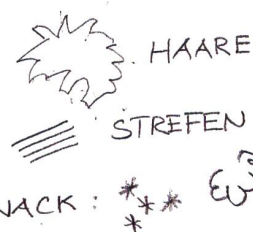 HAARE
STREFEN
NACK :